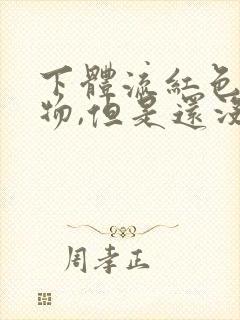 下體流紅色
物,但是還沒
周孝正